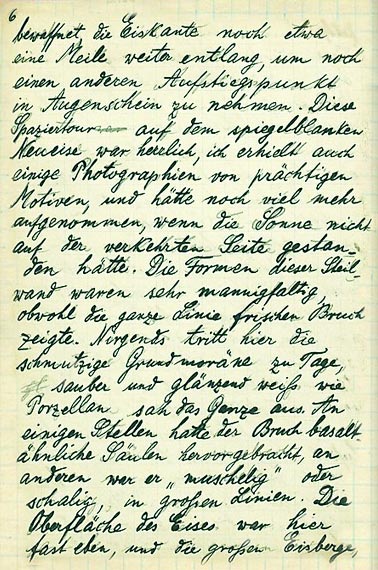 6
bewaffnet, die Eiskante noch etwa
eine Meile weiter entlang, um noch
einen anderen Aufstiegspunkt
in Augenschein zu nehmen. Diese
Spaziertour auf dem spiegelblanken
Neueise war herrlich, ich erhielt auch
einige Photographien von prächtigen
Motiven, und hätte noch viel mehr
aufgenommen, wenn die Sonne nicht
auf der verkehrten Seite gestan-
den hätte. Die Formen dieser Steil-
wand waren sehr mannigfaltig,
obwohl die ganze Linie frischen Bruch
zeigte. Nirgends tritt hier die
schmutzige Grundmoräne zu Tage,
sauber und glänzend weiß wie
Porzellan sah das Ganze aus. An
einigen Stellen hatte der Bruch basalt-
ähnliche Säulen hervorgebracht, an
anderen war er „muschelig" oder
schalig, in großen Linien. Die
Oberfläche des Eises war hier
fast eben, und die großen Eisberge,